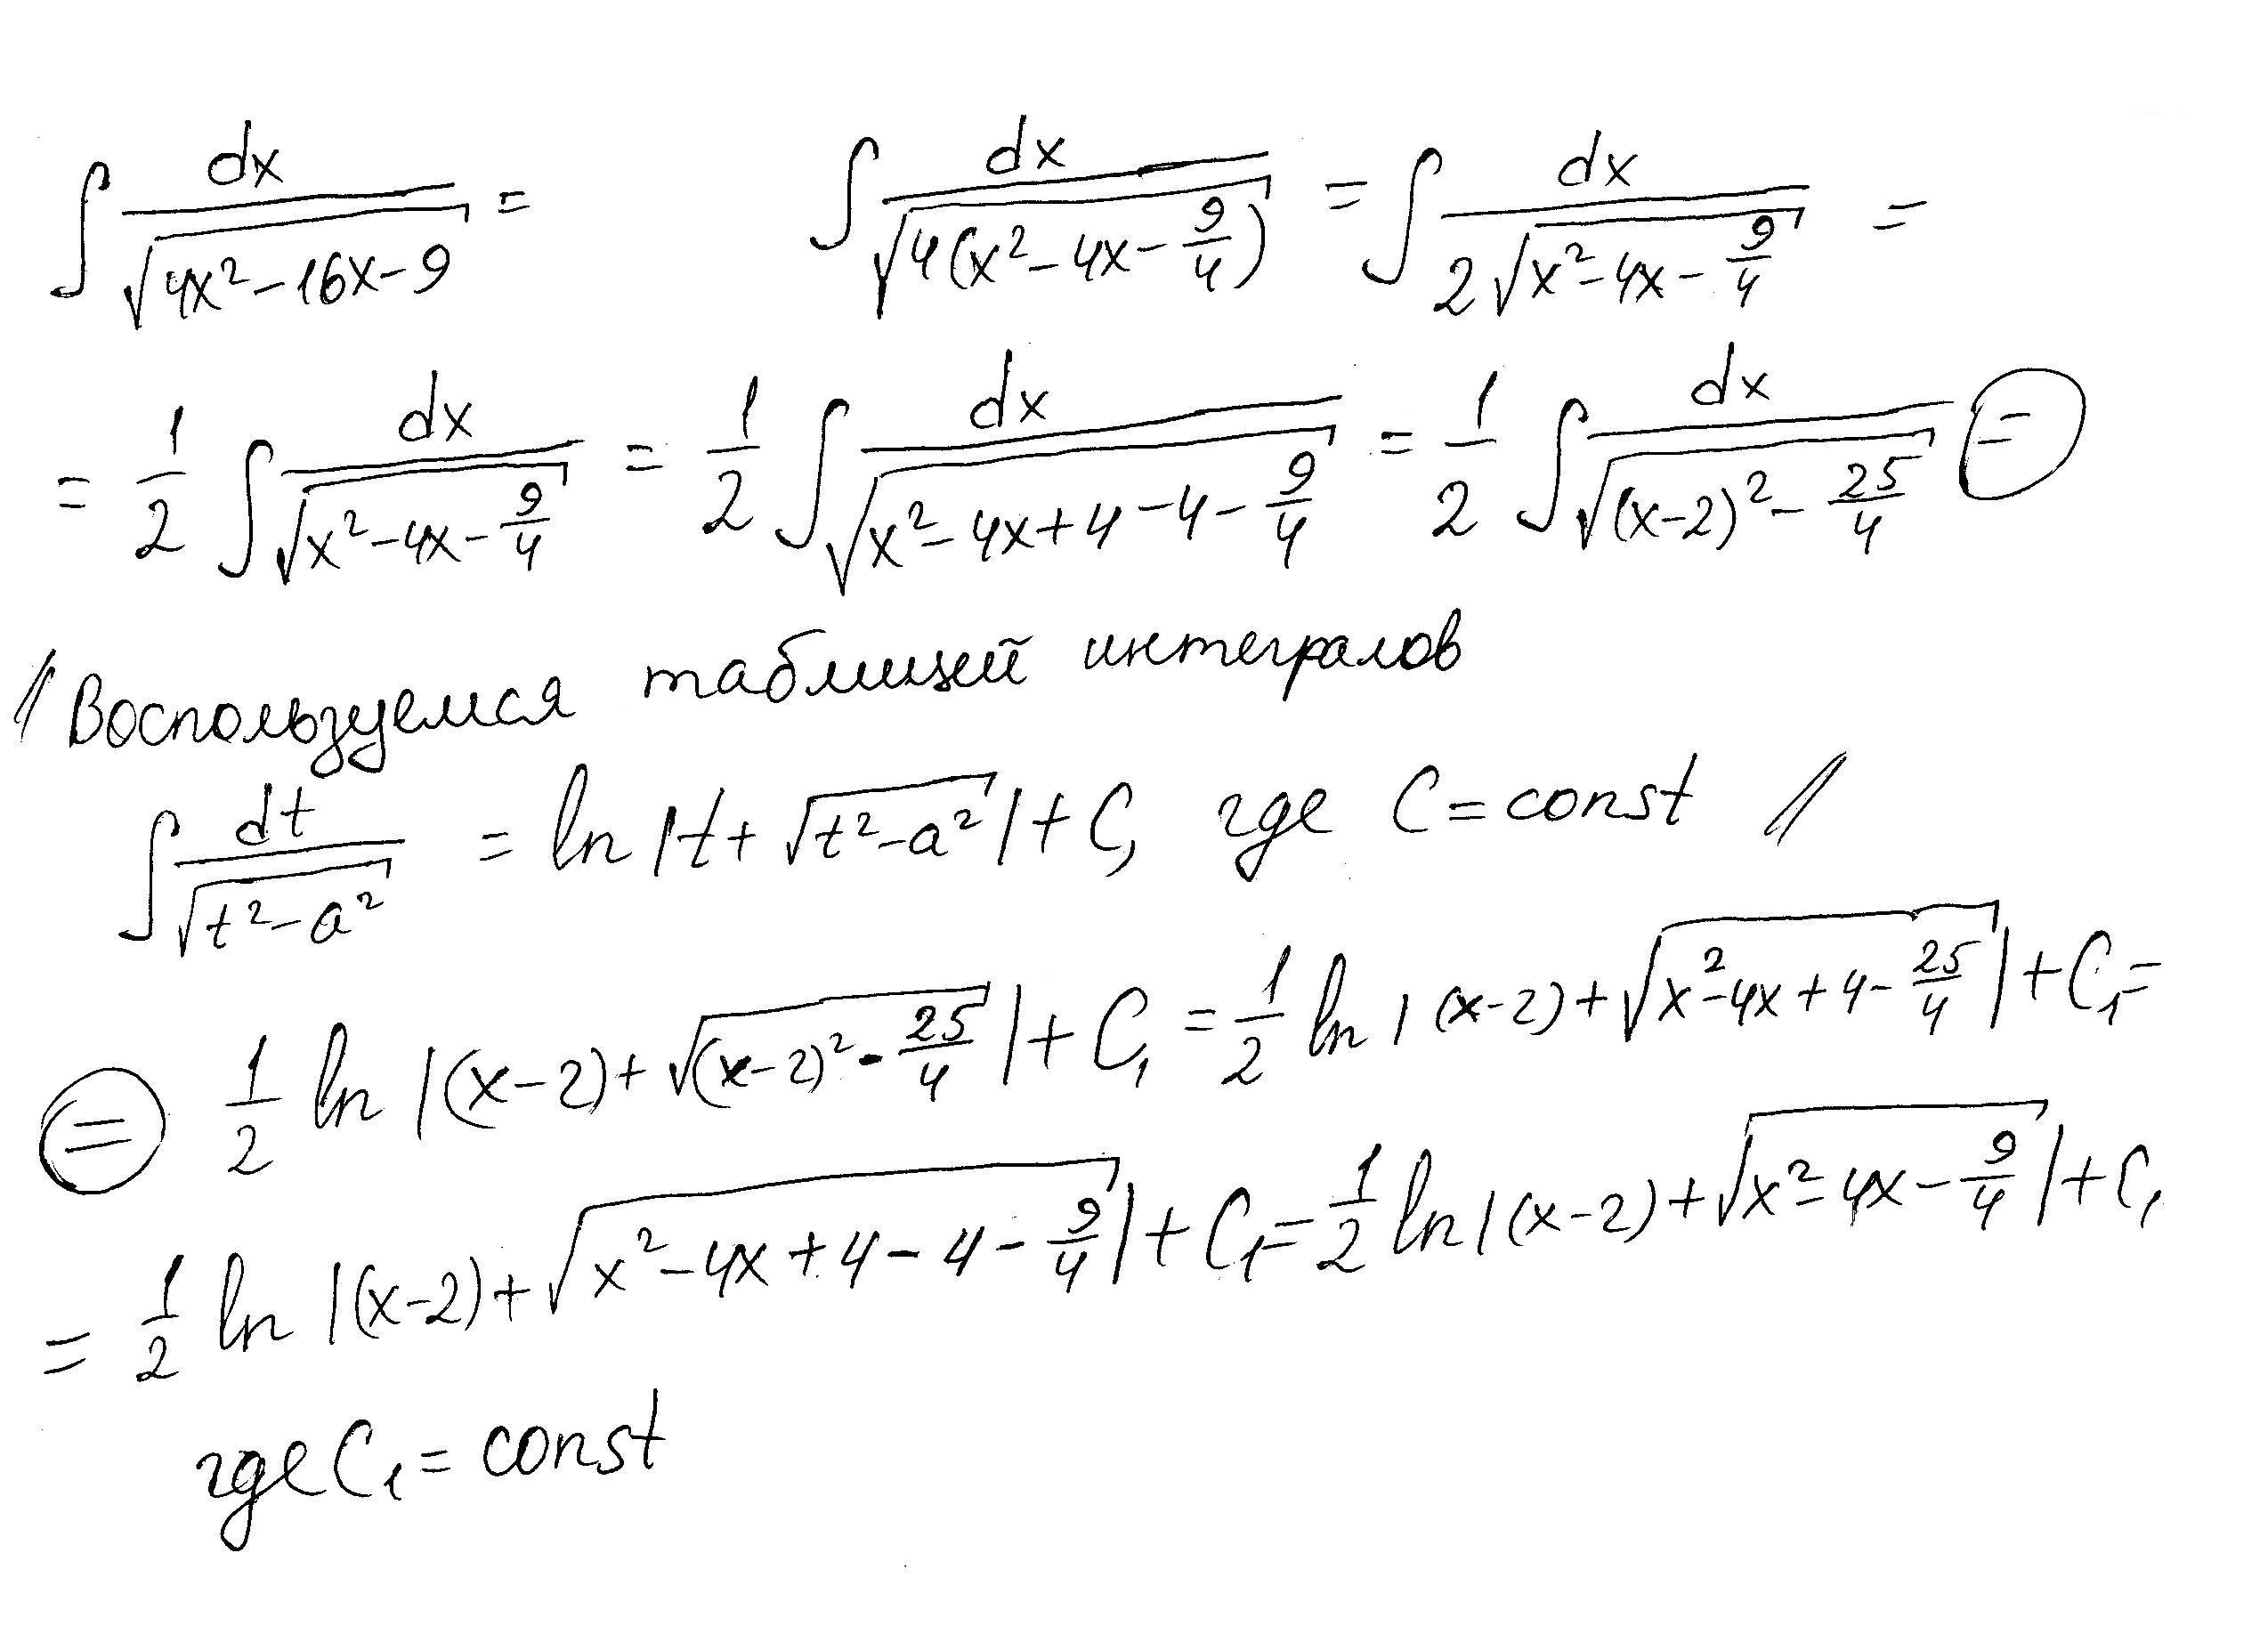 ∫ dx/√(4x²-16x-9) = ∫ dx/√(4(x²-4x-9/4)) = ∫ dx/(2√(x²-4x-9/4)) =
= 1/2 ∫ dx/√(x²-4x-9/4) = 1/2 ∫ dx/√(x²-4x+4-4-9/4) = 1/2 ∫ dx/√((x-2)²-25/4) =
// Воспользуемся таблицей интегралов
∫ dt/√(t²-a²) = ln|t+√(t²-a²)|+C, где C=const //
= 1/2 ln|(x-2)+√((x-2)²-25/4)|+C₁ = 1/2 ln|(x-2)+√(x²-4x+4-25/4)|+C₁=
= 1/2 ln|(x-2)+√(x²-4x+4-4-9/4)|+C₁= 1/2 ln|(x-2)+√(x²-4x-9/4)|+C₁
где C₁=const